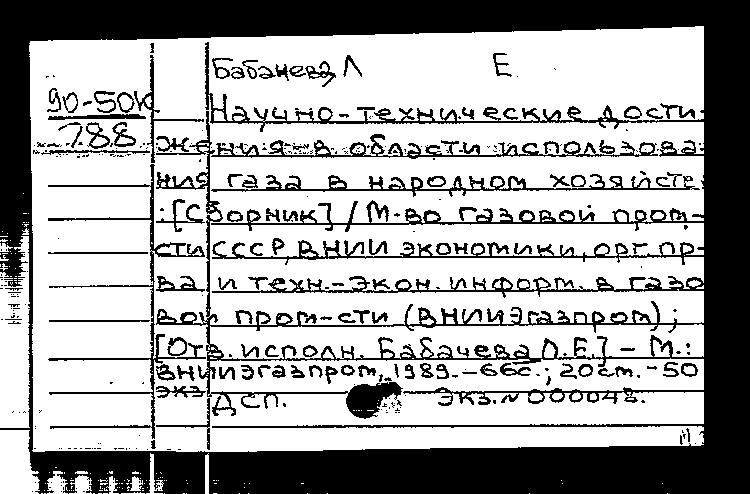 Бабачева Л Е
90-50к
788
Научно-технические дости-
жения в области использова-
ния газа в народном хозяйстве
:[Сборник] / М-во газовой пром-
сти СССР, ВНИИ экономики, орг. пр-
ва и техн.-экон. информ. в газо
вой пром-сти (ВНИИЭгазпром);
[Отв. исполн. Бабачева Л.Е.] - М.:
ВНИИЭгазпром, 1989.-66с.; 20см.-50
экз
ДСП. Экз. N 000048.